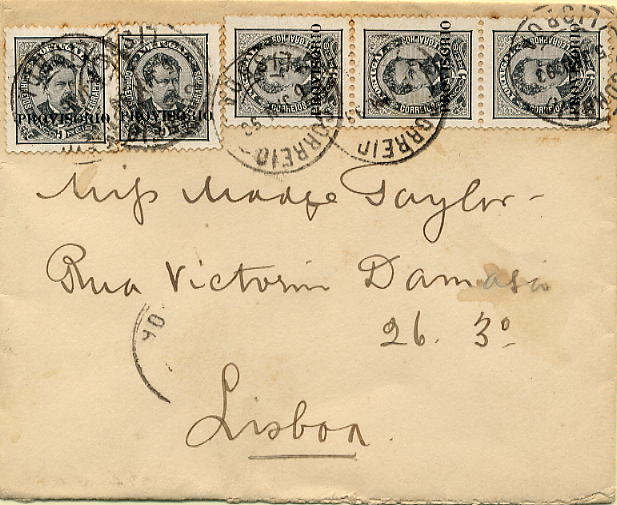 PROVISORIO PROVISORIO PROVISORIO PROVISORIO PROVISORIO
CORREIO CORREIO
Miss Madge Taylor -
Rua Victorin Damasio
26. 3º
Lisboa.